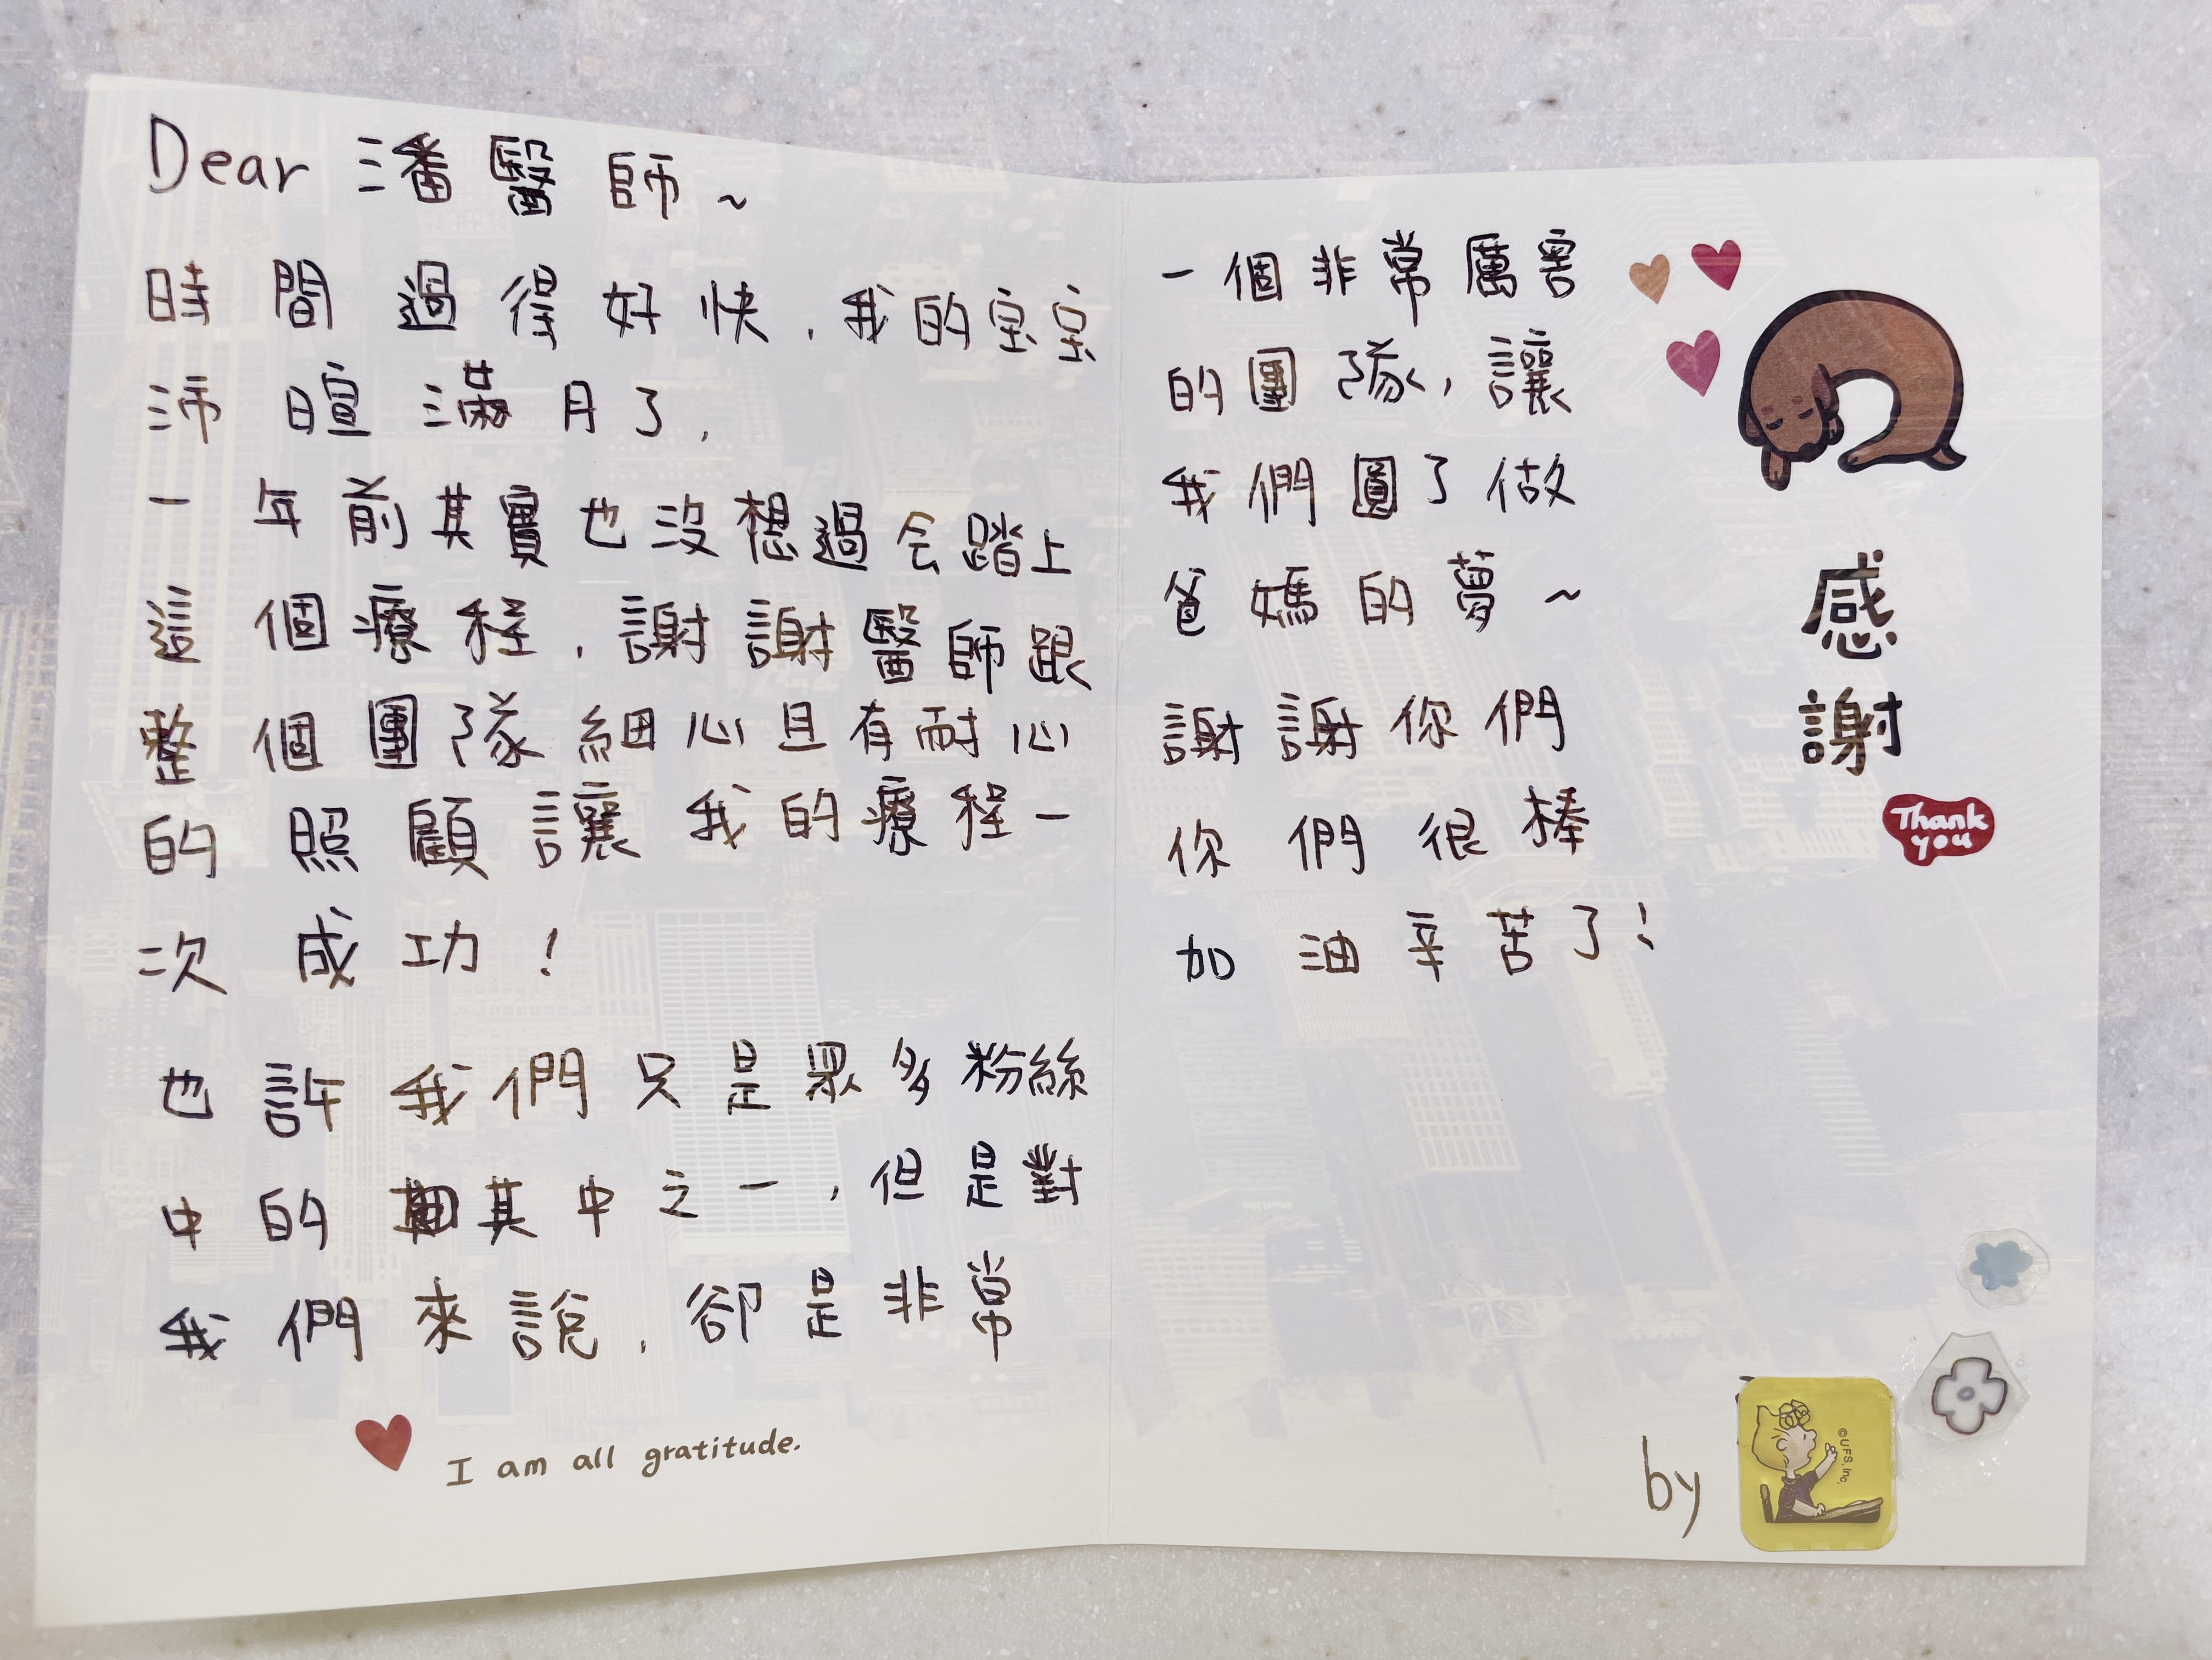 Dear 潘醫師~
時間過得好快，我的宝宝
沛暄滿月了，
一年前其實也沒想過会踏上
這個療程，謝謝醫師跟
整個團隊細心且有耐心
的照顧讓我的療程一
次成功！
也許我們只是眾多粉絲
中的其中之一，但是對
我們來說，卻是非常
I am all gratitude.
一個非常厲害
的團隊，讓
我們圓了做
爸媽的夢~
謝謝你們
你們很棒
加油辛苦了！
感
謝
Thank
you
by
©UFS, Inc.